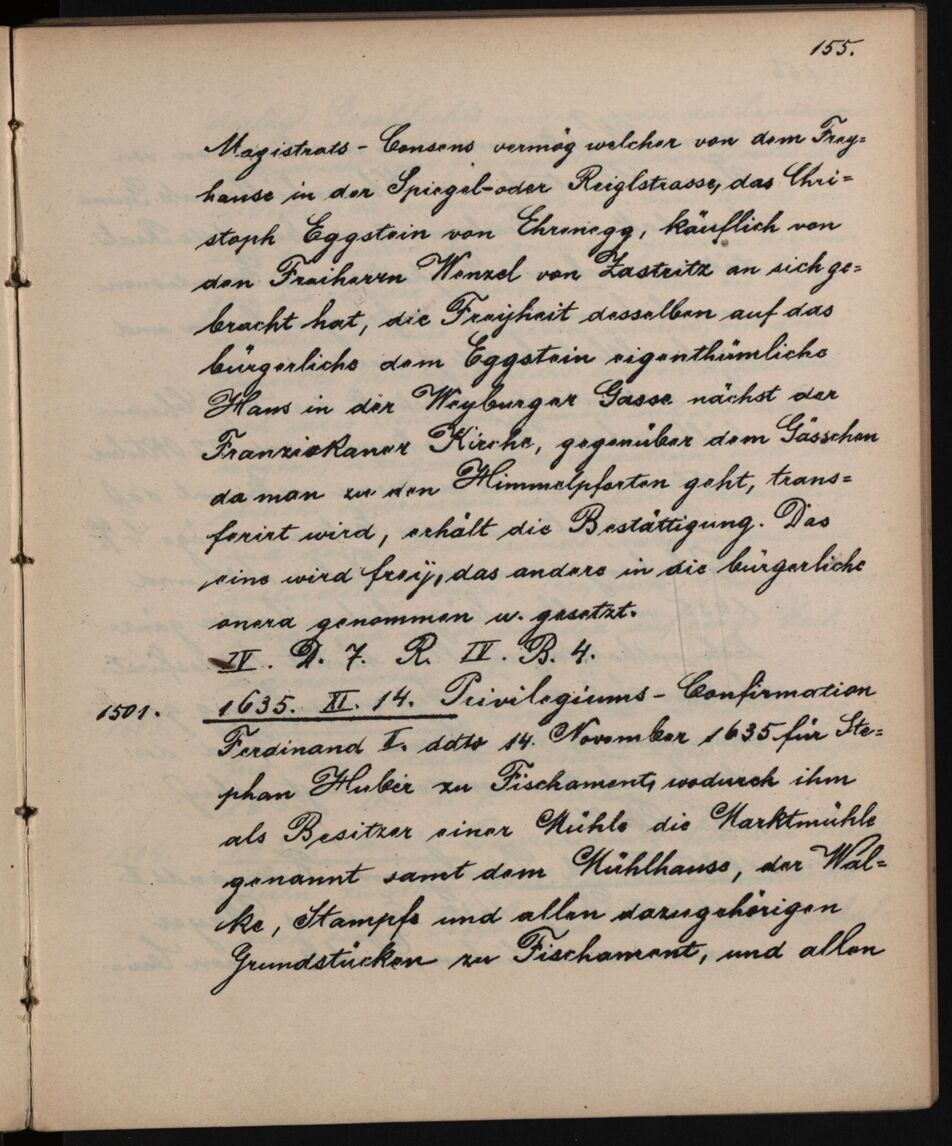 155.
Magistrats - Consens vermög welcher von dem Frey=
hause in der Spiegel- oder Reiglstrasse, das Chri=
stoph Eggstein von Ehrenegg, käuflich von
den Freiherrn Wenzel von Zastritz an sich ge=
bracht hat, die Freijheit desselben auf das
bürgerliche dem Eggstein eigenthümliche
Haus in der Weyburger Gasse nächst der
Franziskaner Kirche, gegenüber dem Gässchen
da man zu den Himmelpforten geht, trans=
ferirt wird, erhält die Bestättigung. Das
eine wird freij, das andere in die bürgerliche
onera genommen u. gesetzt.
IV. D. 7. R. IV. B. 4.
1501. 1635. XI. 14. Privilegiums - Confirmation
Ferdinand II. ddto 14. November 1635 für Ste=
phan Huber zu Fischament, wodurch ihm
als Besitzer einer Mühle die Marktmühle
genannt samt dem Mühlhause, der Wal=
ke, Stampfe und allen dazugehörigen
Grundstücken zu Fischament, und allen